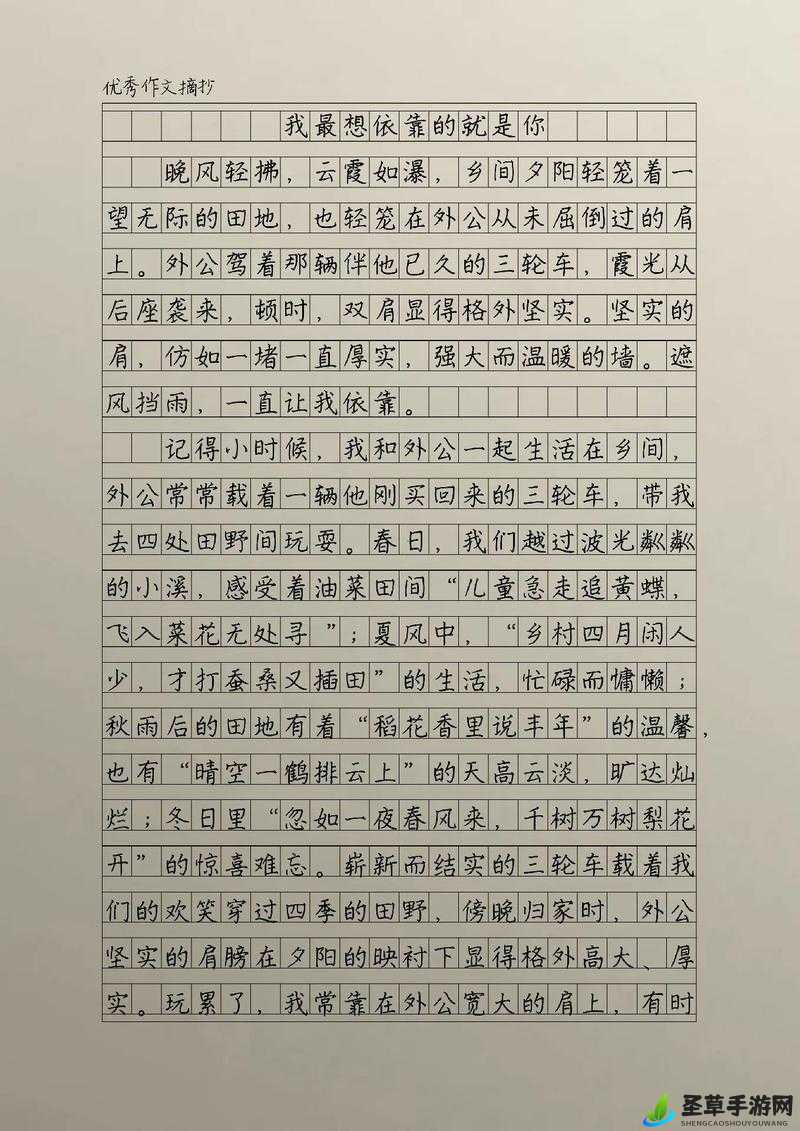 优秀作文摘抄
我最想依靠的就是你
晚风轻拂，云霞如瀑，乡间夕阳轻笼着一
望无际的田地，也轻笼在外公从未屈倒过的肩
上。外公驾着那辆伴他已久的三轮车，霞光从
后座袭来，顿时，双肩显得格外坚实。坚实的
肩，仿如一堵一直厚实，强大而温暖的墙。遮
风挡雨，一直让我依靠。
记得小时候，我和外公一起生活在乡间，
外公常常载着一辆他刚买回来的三轮车，带我
去四处田野间玩耍。春日，我们越过波光粼粼
的小溪，感受着油菜田间“儿童急走追黄蝶，
飞入菜花无处寻”；夏风中，“乡村四月闲人
少，才打蚕桑又插田”的生活，忙碌而慵懒；
秋雨后的田地有着“稻花香里说丰年”的温馨，
也有“晴空一鹤排云上”的天高云淡，旷达灿
烂；冬日里“忽如一夜春风来，千树万树梨花
开”的惊喜难忘。崭新而结实的三轮车载着我
们的欢笑穿过四季的田野，傍晚归家时，外公
坚实的肩膀在夕阳的映衬下显得格外高大、厚
实。玩累了，我常靠在外公宽大的肩上，有时
圣草手游网
SHENGCAOSHOUYOUWANG